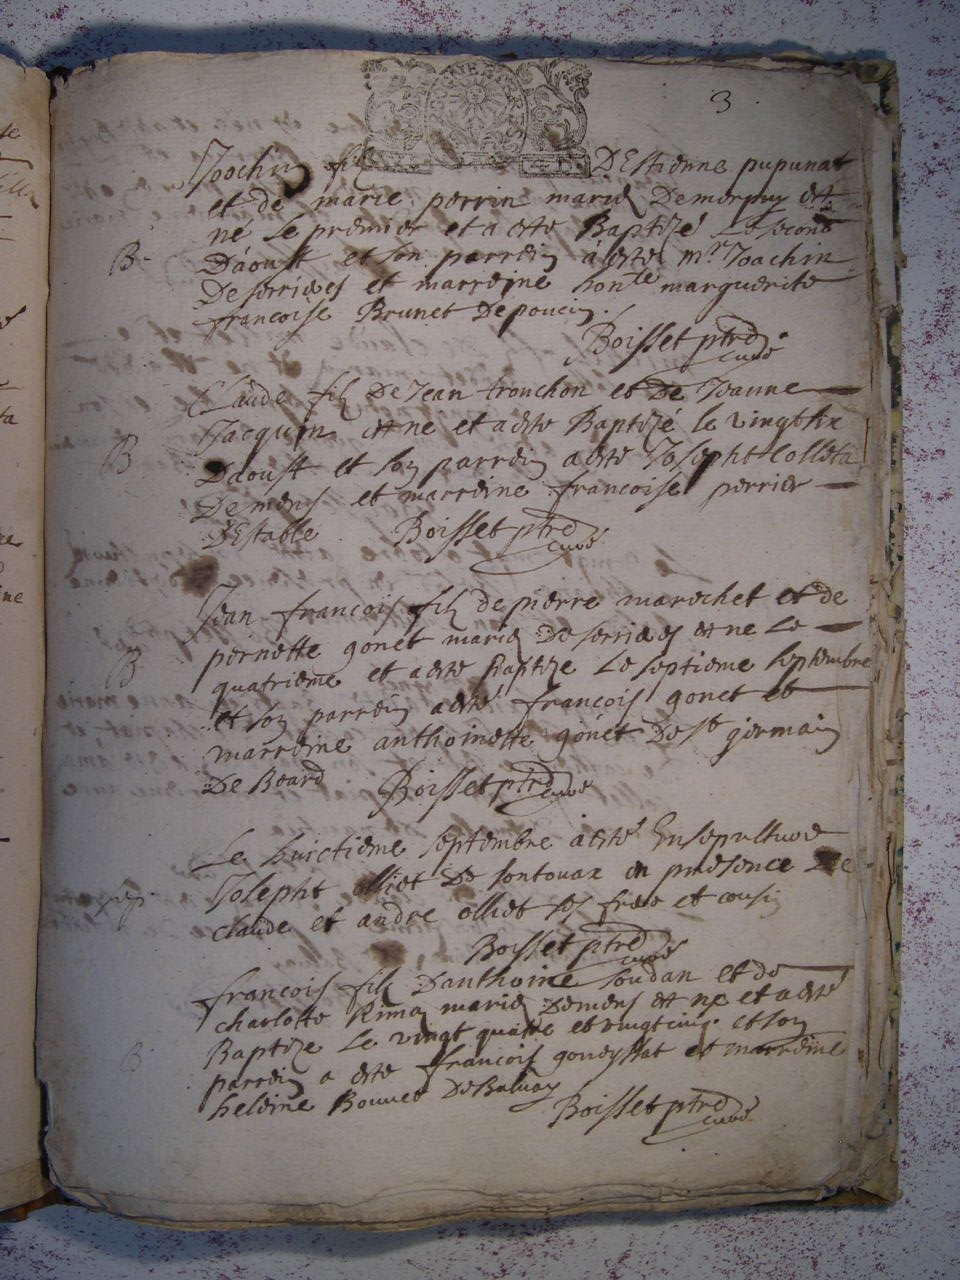 3
Joachin filz D'Estienne pupunat
et de marie perrin mariez Demorpay est
né Le premier et a esté Baptizé Le second
B. D'áoust et son parrein à esté mr Joachin
De serrieres et marreine honle marguerite
francoise Brunet De poucin.
Boisset ptre
curé
Claude filz De Jean tronchon et De Jeanne
Jacquin est ne et a esté Baptizé le vingt six
B D'aoust et son parrein a esté Joseph Colleta
De mens et marreine francoise perrier
D'Estable Boisset ptre
curé
Jean francois filz de pierre marechet et de
pernette gonet mariez De serrieres est ne Le
B quatrieme et a esté Baptize Le septieme septembre
et son parrein a esté francois gonet et
marreine anthoinette gonet De st germain
De Beard Boisset ptre
curé
Le huictieme septembre à esté Ensepulturé
Sep. Joseph olliet De sontouax en presence De
claude et andre olliet ses frere et cousin
Boisset ptre
curé
francois filz D'anthoine soudan et de
charlotte Rima mariez De mens est ne et a esté
B Baptize Le vingt quatre et vingt cinq. et son
parrein a esté francois goneyssat et marreine
heleine Bouvet De
Boisset ptre
curé